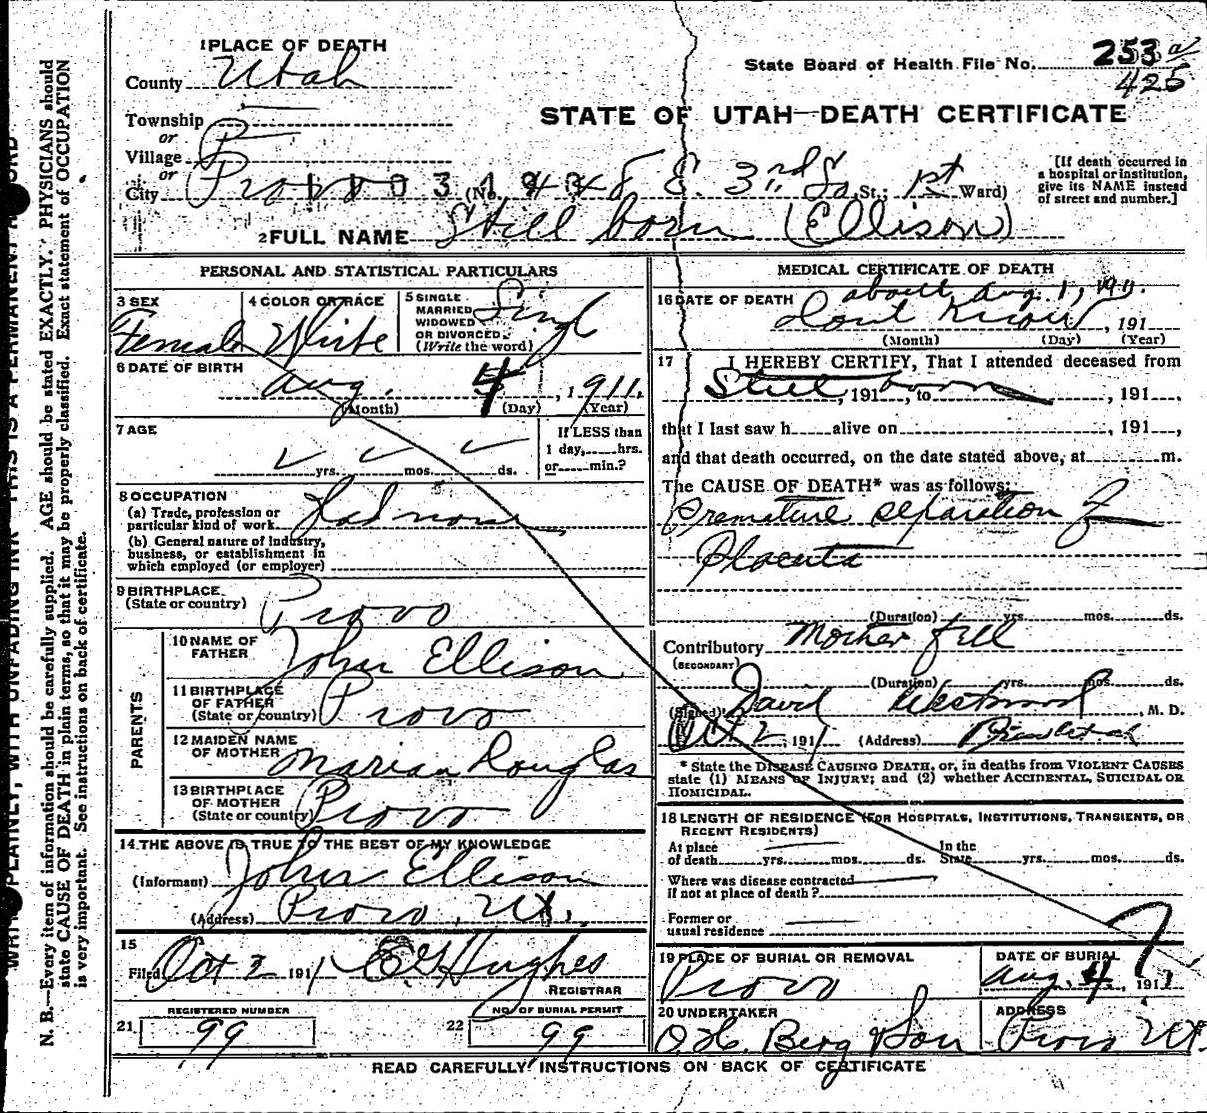 253 a/
State Board of Health File No. 425
1 PLACE OF DEATH
County Utah
STATE OF UTAH—DEATH CERTIFICATE
Township
or
Village
or
City Provo (No. E. 3rd So. St.; 1st Ward)
[If death occurred in a hospital or institution, give its NAME instead of street and number.]
2 FULL NAME Still born (Ellison)
PERSONAL AND STATISTICAL PARTICULARS
3 SEX Female
4 COLOR OR RACE White
5 SINGLE MARRIED WIDOWED OR DIVORCED (Write the word) Singl
6 DATE OF BIRTH
Aug. 4, 1911.
(Month) (Day) (Year)
7 AGE
yrs. mos. ds.
If LESS than 1 day, hrs. or min.?
8 OCCUPATION
(a) Trade, profession or particular kind of work Had none
(b) General nature of Industry, business, or establishment in which employed (or employer)
9 BIRTHPLACE
(State or country) Provo
PARENTS
10 NAME OF FATHER John Ellison
11 BIRTHPLACE OF FATHER (State or country) Provo
12 MAIDEN NAME OF MOTHER Marian Douglas
13 BIRTHPLACE OF MOTHER (State or country) Provo
14 THE ABOVE IS TRUE TO THE BEST OF MY KNOWLEDGE
(Informant) John Ellison
(Address) Provo, Ut.
15
Filed Oct 2 1911 Hughes
REGISTRAR
REGISTERED NUMBER
21 99
NO. OF BURIAL PERMIT
22 99
MEDICAL CERTIFICATE OF DEATH
16 DATE OF DEATH about Aug. 1, 1911.
Dont Know, 191
(Month) (Day) (Year)
17 I HEREBY CERTIFY, That I attended deceased from
Still born, 191, to, 191,
that I last saw h alive on, 191,
and that death occurred, on the date stated above, at m.
The CAUSE OF DEATH* was as follows:
Premature separation of
Placenta
(Duration) yrs. mos. ds.
Contributory Mother fell
(SECONDARY)
(Duration) yrs. mos. ds.
(Signed) David Westwood, M. D.
Oct 2, 1911 (Address)
* State the DISEASE CAUSING DEATH, or, in deaths from VIOLENT CAUSES
state (1) MEANS OF INJURY; and (2) whether ACCIDENTAL, SUICIDAL OR
HOMICIDAL.
18 LENGTH OF RESIDENCE (FOR HOSPITALS, INSTITUTIONS, TRANSIENTS, OR
RECENT RESIDENTS)
At place of death yrs. mos. ds. In the State yrs. mos. ds.
Where was disease contracted
if not at place of death?
Former or
usual residence
19 PLACE OF BURIAL OR REMOVAL
Provo
DATE OF BURIAL
Aug. 4, 1911
20 UNDERTAKER
O. H. Berg & Son
ADDRESS
Provo Ut.
READ CAREFULLY INSTRUCTIONS ON BACK OF CERTIFICATE
N. B.—Every item of information should be carefully supplied. AGE should be stated EXACTLY. PHYSICIANS should
state CAUSE OF DEATH in plain terms, so that it may be properly classified. Exact statement of OCCUPATION
is very important. See instructions on back of certificate.
PLAINLY, WITH UNFADING INK—THIS IS A PERMANENT